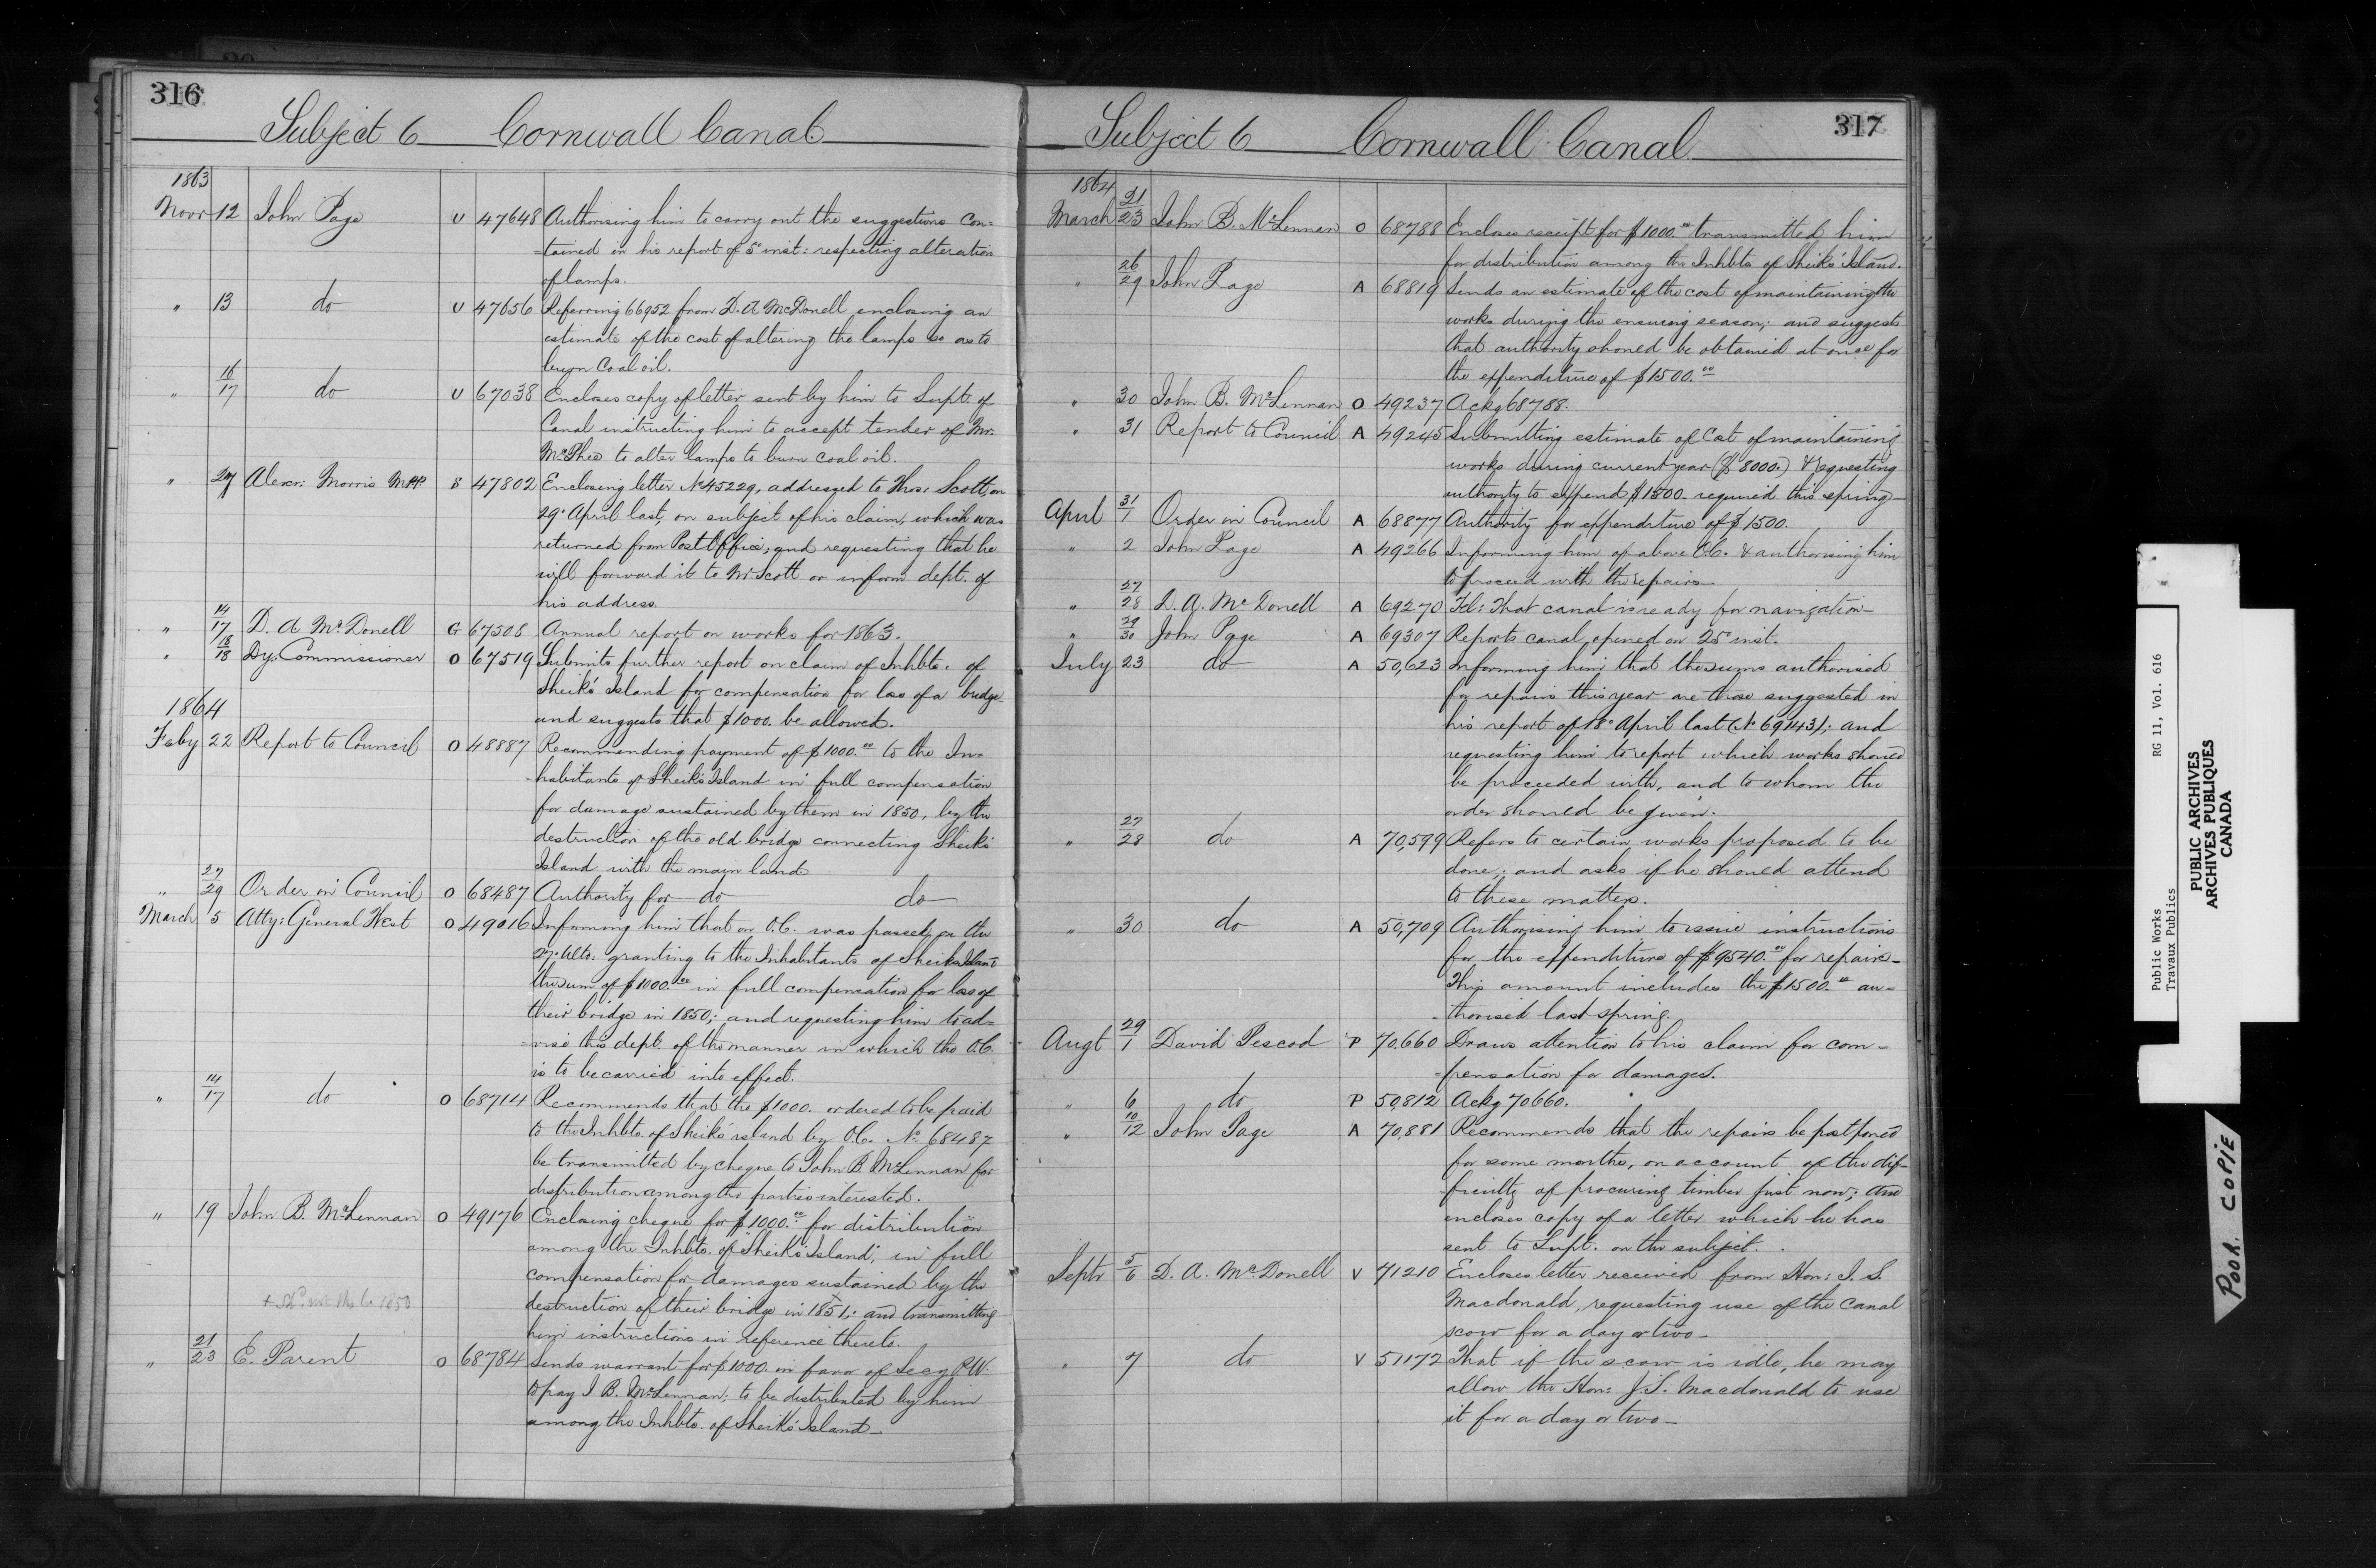 316
Subject 6 Cornwall Canal
1863
Novr 12 John Page U 47648 Authorising him to carry out the suggestions con-
-tained in his report of 5th inst: respecting alteration
of lamps.
" 13 do U 47656 Referring 66952 from D. A McDonell enclosing an
estimate of the cost of altering the lamps so as to
burn Coal oil.
" 16/17 do U 67038 Encloses copy of letter sent by him to Supt. of
Canal instructing him to accept tender of Mr.
McPhee to alter lamps to burn coal oil.
" 27 Alexr: Morris MPP. S 47802 Enclosing letter No 45229, addressed to Thos: Scott, on
29th April last, on subject of his claim, which was
returned from Post Office; and requesting that he
will forward it to Mr Scott or inform dept. of
his address.
" 14/17 D. A McDonell G 67508 Annual report on works for 1863.
" 18/18 Dy. Commissioner O 67519 Submits further report on claim of Inhbts. of
Sheik's Island for compensation for loss of a bridge
and suggests that $1000. be allowed.
1864
Feby 22 Report to Council O 48887 Recommending payment of $1000.00 to the In-
-habitants of Sheik's Island in full compensation
for damage sustained by them in 1850, by the
destruction of the old bridge connecting Sheik's
Island with the main land
" 27/29 Order in Council O 68487 Authority for do do
March 5 Atty: General West O 49016 Informing him that an O.C. was passed on the
27th Ulto: granting to the Inhabitants of Sheik's Island
the sum of $1000.00 in full compensation for loss of
their bridge in 1850; and requesting him to ad-
-vise this dept. of the manner in which the O.C.
is to be carried into effect.
" 14/17 do O 68714 Recommends that the $1000. ordered to be paid
to the Inhbts. of Sheik's island by O.C. No. 68487
be transmitted by cheque to John B McLennan for
distribution among the parties interested.
" 19 John B. McLennan O 49176 Enclosing cheque for $1000.00 for distribution
among the Inhbts. of Sheik's Island, in full
compensation for damages sustained by the
destruction of their bridge in 1851; and transmitting
him instructions in reference thereto.
" 21/23 E. Parent O 68784 Sends warrant for $1000. in favor of Secy P.W.
to pay J. B. McLennan; to be distributed by him
among the Inhbts. of Sheik's Island
317
Subject 6 Cornwall Canal
1864
March 21/23 John B. McLennan O 68788 Encloses receipt for $1000.00 transmitted him
for distribution among the Inhbts of Sheik's Island.
" 26/29 John Page A 68819 Sends an estimate of the cost of maintaining the
works during the ensuing season; and suggests
that authority should be obtained at once for
the expenditure of $1500.00
" 30 John B. McLennan O 49237 Ackg 68788.
" 31 Report to Council A 49245 Submitting estimate of Cost of maintaining
works during current year ($8000.) & requesting
authority to expend $1500 required this spring
April 31/1 Order in Council A 68877 Authority for expenditure of $1500.
" 2 John Page A 49266 Informing him of above O.C. & authorising him
to proceed with the repairs
" 27/28 D. A. McDonell A 69270 Tel: That canal is ready for navigation
" 29/30 John Page A 69307 Reports canal opened on 25th inst.
July 23 do A 50,623 Informing him that the sums authorised
for repairs this year are those suggested in
his report of 18th April last (No 69143); and
requesting him to report which works should
be proceeded with, and to whom the
order should be given.
" 27/28 do A 70,599 Refers to certain works proposed to be
done; and asks if he should attend
to these matters.
" 30 do A 50,709 Authorising him to issue instructions
for the expenditure of $9540.00 for repairs
This amount includes the $1500.00 au-
-thorised last spring.
Augt 29/1 David Pescod P 70,660 Draws attention to his claim for com-
-pensation for damages.
" 6 do P 50,812 Ackg 70660.
" 10/12 John Page A 70,881 Recommends that the repairs be postponed
for some months, on account of the dif-
-ficulty of procuring timber just now; and
encloses copy of a letter which he has
sent to Supt. on the subject.
Septr 5/6 D. A. McDonell V 71210 Encloses letter received from Hon: J. S.
Macdonald, requesting use of the Canal
scow for a day or two
" 7 do V 51172 That if the scow is idle, he may
allow the Hon: J. S. Macdonald to use
it for a day or two
Public Works RG 11, Vol. 616
Travaux Publics
PUBLIC ARCHIVES
ARCHIVES PUBLIQUES
CANADA
POOR COPIE